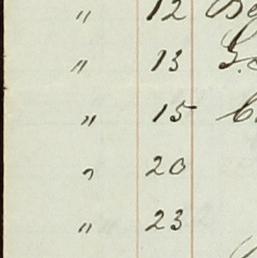 " 12
" 13
" 15
" 20
" 23